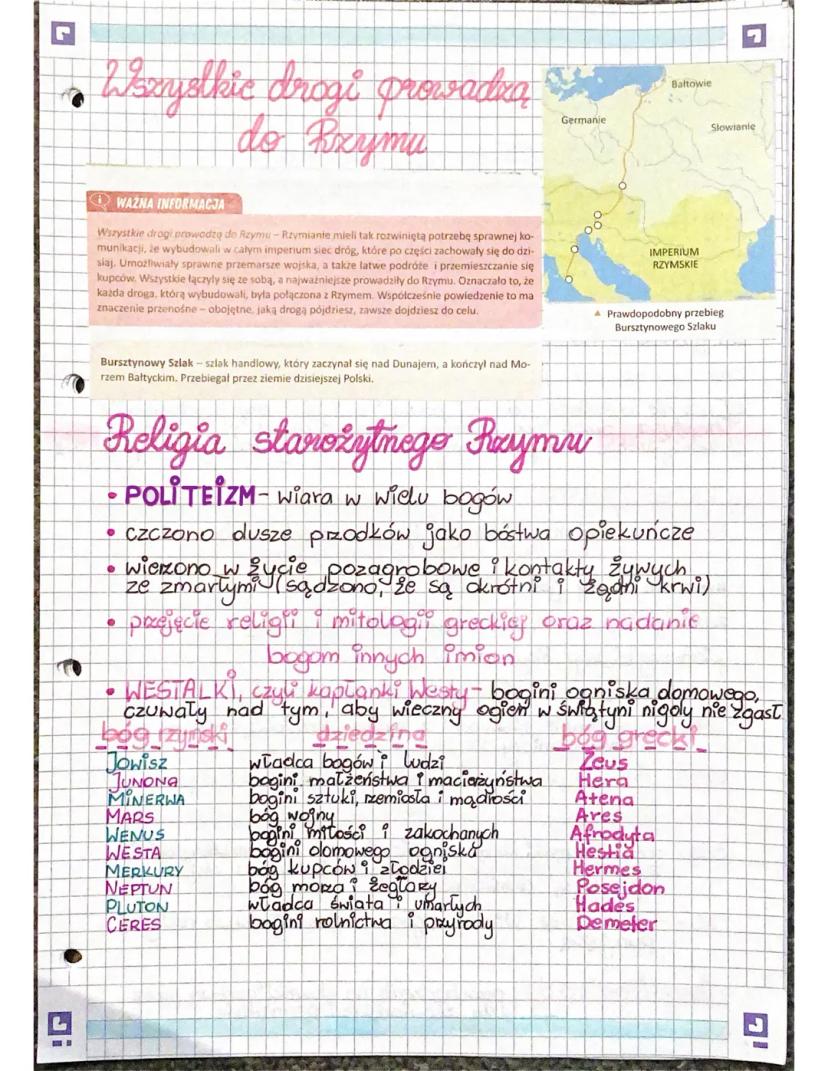 Wszystkie drogi prowadzą
do Rzymu
Bałtowie
Germanie
Słowianie
IMPERIUM
RZYMSKIE
Prawdopodobny przebieg
Bursztynowego Szlaku
WAŻNA INFORMACJA
Wszystkie drogi prowadzą do Rzymu – Rzymianie mieli tak rozwiniętą potrzebę sprawnej ko-
munikacji, że wybudowali w całym imperium sieć dróg, które po części zachowały się do dzi-
siaj. Umożliwiały sprawne przemarsze wojska, a także łatwe podróże i przemieszczanie się
kupców. Wszystkie łączyły się ze sobą, a najważniejsze prowadziły do Rzymu. Oznaczało to, że
każda droga, którą wybudowali, była połączona z Rzymem. Współcześnie powiedzenie to ma
znaczenie przenośne – obojętne, jaką drogą pójdziesz, zawsze dojdziesz do celu.
Bursztynowy Szlak – szlak handlowy, który zaczynał się nad Dunajem, a kończył nad Mo-
rzem Bałtyckim. Przebiegał przez ziemie dzisiejszej Polski.
Religia starożytnego Rzymu
• POLITEIZM- wiara w wielu bogów
• czczono dusze przodków jako bóstwa opiekuńcze
• wierzono w życie pozagrobowe i kontakty żywych
ze zmarłymi (sądzono, że są okrótni i żądni krwi)
• przejęcie religii i mitologii greckiej oraz nadanie
bogom innych imion
• WESTALKI, czyli kapłanki Westy- bogini ogniska domowego,
czuwały nad tym, aby wieczny ogień w świątyni nigdy nie zgasł
bóg rzymski dziedzina bóg grecki
JOWISZ władca bogów i ludzi Zeus
JUNONA bogini małżeństwa i macierzyństwa Hera
MINERWA bogini sztuki, rzemiosła i mądrości Atena
MARS bóg wojny Ares
WENUS bogini miłości i zakochanych Afrodyta
WESTA bogini domowego ogniska Hestia
MERKURY bóg kupców i złodziei Hermes
NEPTUN bóg morza i żeglarzy Posejdon
PLUTON władca świata i umarłych Hades
CERES bogini rolnictwa i przyrody Demeter